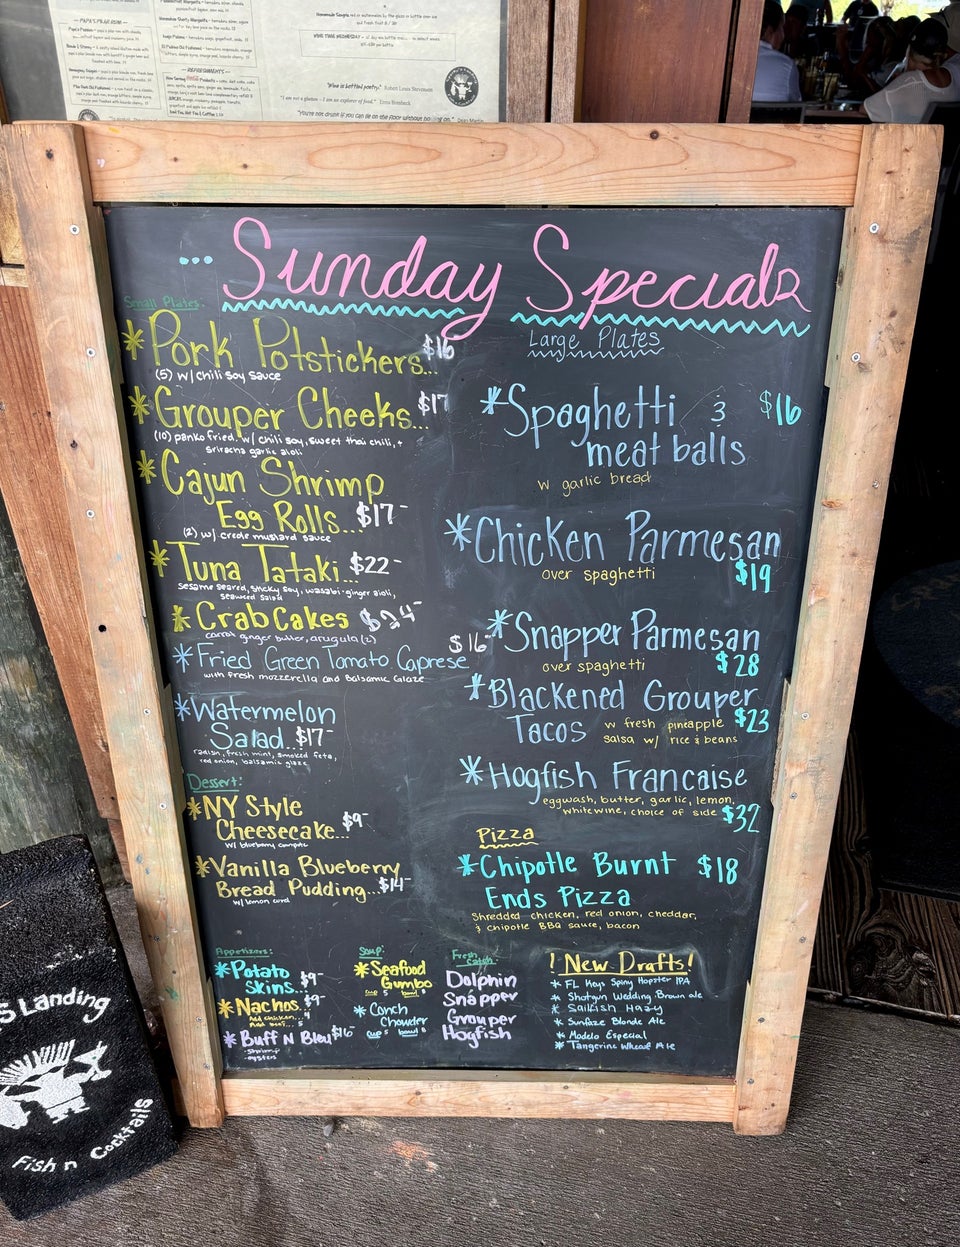 PAPA'S PILAR RUM
REFRESHMENTS
"Wine is bottled poetry." Robert Louis Stevenson
"I am not a glutton - I am an explorer of food." Erma Bombeck
"You're not drunk if you can lie on the floor without holding on." Dean Martin
... Sunday Specials
Small Plates:
* Pork Potstickers... $16
(5) w/ chili soy sauce
* Grouper Cheeks... $17
(10) panko fried, w/ chili soy, sweet thai chili, +
sriracha garlic aioli
* Cajun Shrimp
Egg Rolls... $17-
(2) w/ creole mustard sauce
* Tuna Tataki... $22-
sesame seared, sticky soy, wasabi-ginger aioli,
seaweed salad
* Crab Cakes $24-
carrot ginger butter, arugula (2)
* Fried Green Tomato Caprese $16-
with fresh mozzerella and Balsamic Glaze
* Watermelon
Salad... $17-
radish, fresh mint, smoked feta,
red onion, balsamic glaze
Dessert:
* NY Style
Cheesecake... $9-
w/ blueberry compote
* Vanilla Blueberry
Bread Pudding... $14-
w/ lemon curd
Large Plates
* Spaghetti & $16
meat balls
w garlic bread
* Chicken Parmesan
over spaghetti $19
* Snapper Parmesan
over spaghetti $28
* Blackened Grouper
Tacos w fresh pineapple $23
salsa w/ rice & beans
* Hogfish Francaise
eggwash, butter, garlic, lemon,
white wine, choice of side $32
Pizza
* Chipotle Burnt $18
Ends Pizza
Shredded chicken, red onion, cheddar,
& chipotle BBQ sauce, bacon
Appetizers:
* Potato
Skins... $9-
* Nachos... $9-
Add chicken
* Buff N Bleu $16-
-shrimp
-oysters
Soup:
* Seafood
Gumbo
cup 5 bowl 8
* Conch
Chowder
cup 5 bowl 8
Fresh
Catch:
Dolphin
Snapper
Grouper
Hogfish
! New Drafts!
* FL Keys Spiny Hopster IPA
* Shotgun Wedding Brown ale
* Sailfish Hazy
* Sunfaze Blonde Ale
* Modelo Especial
* Tangerine Wheat Ale
Landing
Fish n Cocktails